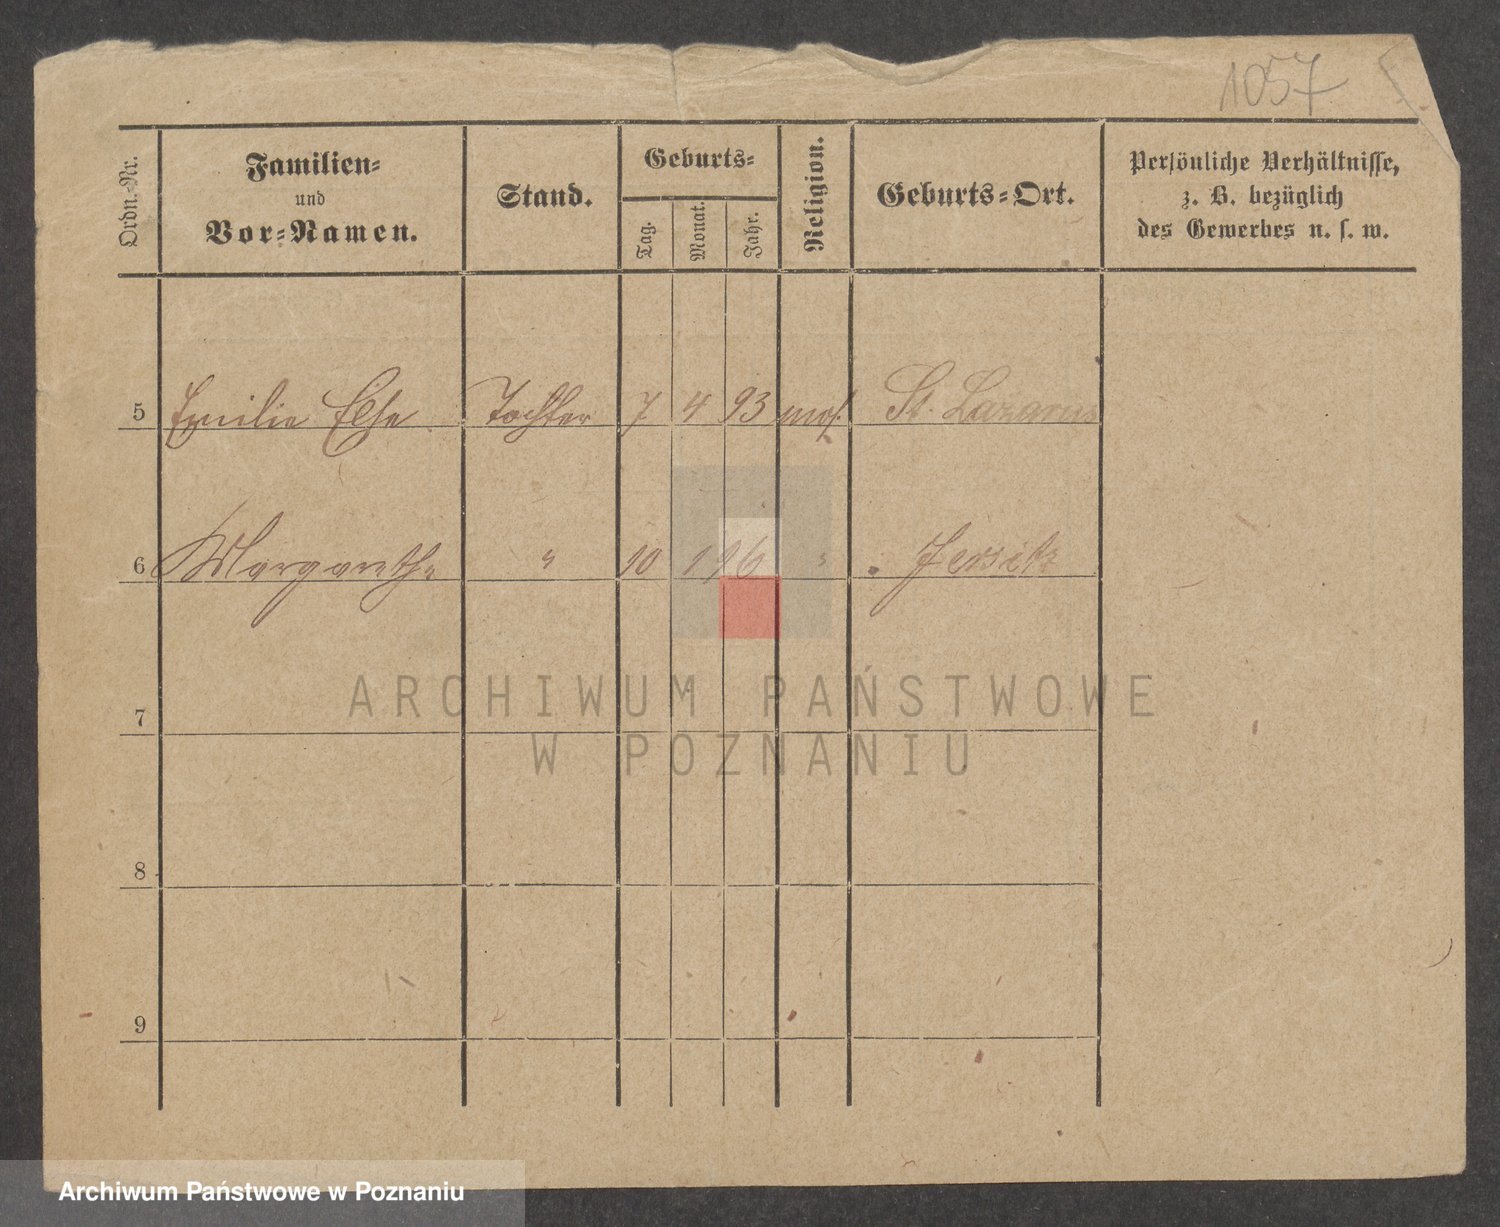 1057
Ordn.-Nr.
Familien-
und
Vor-Namen.
Stand.
Geburts-
Tag.
Monat.
Jahr.
Religion.
Geburts-Ort.
Persönliche Verhältnisse,
z. B. bezüglich
des Gewerbes u. s. w.
5 Emilie Else Tochter 7 4 93 St. Lazarus
6 Margarethe " 10 1 96 " Jersitz
7
8
9
ARCHIWUM PAŃSTWOWE
W POZNANIU
Archiwum Państwowe w Poznaniu